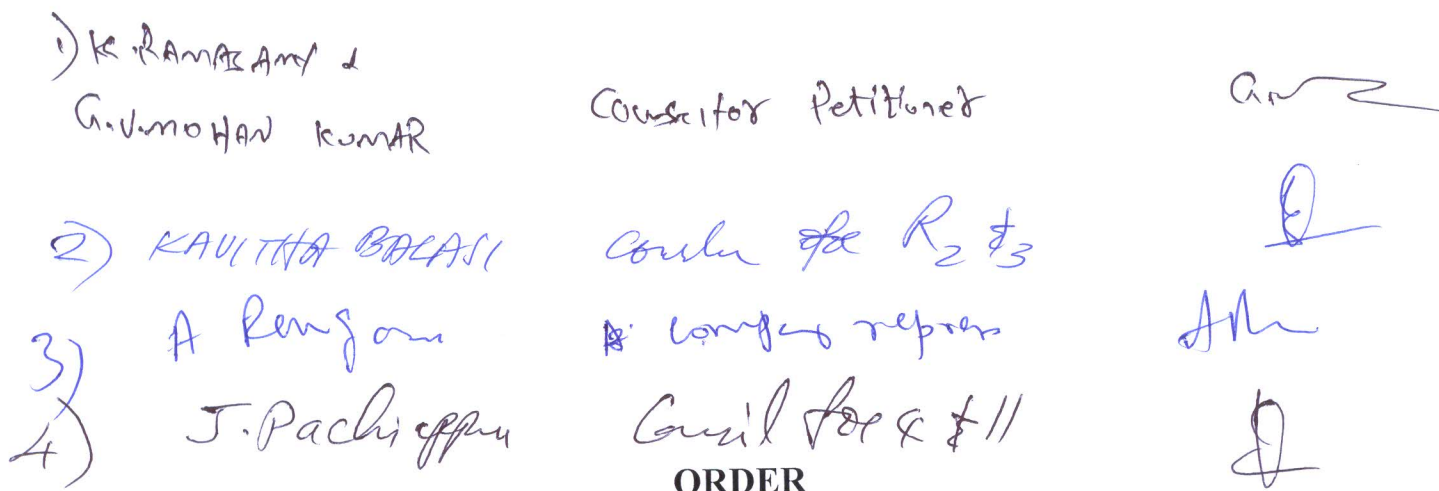 1) K. RAMASAMY &
G.V. MOHAN KUMAR Counsel for Petitioner
2) KAVITHA BALAJI Counsel for R2 & 3
3) A Rengan company repres
4) J. Pachiappan Councsil for & 11
ORDER